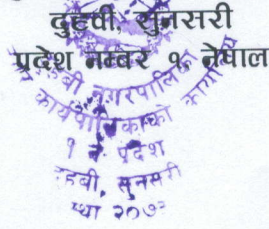 दुहवी, सुनसरी
प्रदेश नम्बर १, नेपाल
नगरपालिका
कार्यपालिकाको कार्यालय
१ नं. प्रदेश
दुहबी, सुनसरी
२०७३